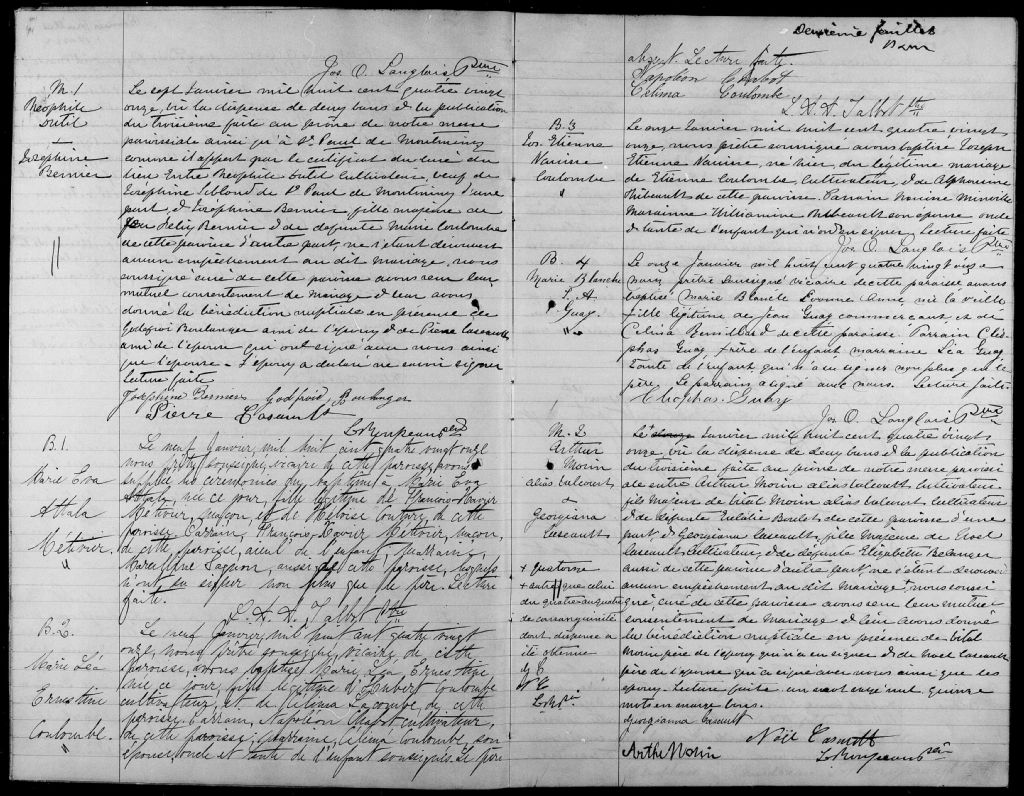 Jos. O. Langlois Ptre
M. 1
Néophile
Dutil
&
Joséphine
Bernier
"
Le sept Janvier mil huit cent quatre vingt
onze vu la dispense de deux bans & la publication
du troisième faite au prône de notre messe
paroissiale ainsi qu'à St Paul de Montminy
comme il appert par le certificat du curé du
lieu Entre Néophile Dutil Cultivateur, veuf de
Joséphine Leblond de St Paul de Montminy d'une
part, & Joséphine Bernier fille majeure de
feu Bernier & de défunte Marie Coulombe
de cette paroisse d'autre part, ne s'étant découvert
aucun empêchement au dit mariage, nous
soussigné curé de cette paroisse avons reçu leur
mutuel consentement de mariage & leur avons
donné la bénédiction nuptiale en présence de
Godefroi Boulanger ami de l'époux & de Pierre Casault
ami de l'épouse qui ont signé avec nous ainsi
que l'épouse - L'époux a déclaré ne savoir signer
Lecture faite
Joséphine Bernier Godfroid Boulanger
Pierre Casault
B. 1.
Marie Eva
Attala
Métivier
"
Le neuf Janvier, mil huit cent quatre vingt onze
nous prêtre soussigné, vicaire de cette paroisse, avons
suppléé les cérémonies du baptême à Marie Eva
Attala, née ce jour, fille légitime de François-Xavier
Métivier, maçon, et de Héloïse Couture, de cette
paroisse. Parrain, François-Xavier Métivier, maçon,
de cette paroisse, aïeul de l'enfant, marraine,
aussi de cette paroisse, lesquels
n'ont su signer non plus que le père. Lecture
faite.
L. X. D. Talbot Ptre
B. 2.
Marie Léa
Ernestine
Coulombe.
"
Le neuf Janvier, mil huit cent quatre vingt
onze, nous prêtre soussigné, vicaire de cette
paroisse, avons baptisé Marie Léa, Ernestine
née ce jour, fille légitime d'Hubert Coulombe
cultivateur, et de Lacombe, de cette
paroisse. Parrain, Napoléon Chabot cultivateur,
de cette paroisse; marraine, Célima Coulombe, son
épouse, oncle et tante de l'enfant soussignés. Le père
Deuxième feuillet
absent. Lecture faite.
Napoléon Chabot
Célima Coulombe
L. X. D. Talbot Ptre
B. 3
Jos. Etienne
Narcisse
Coulombe
"
Le onze Janvier mil huit cent quatre vingt
onze, nous prêtre soussigné avons baptisé Joseph
Etienne Narcisse, né hier, du légitime mariage
de Etienne Coulombe, Cultivateur, & de Alphonsine
Thibeault de cette paroisse. Parrain Narcisse Minville
Marraine Thibeault son épouse oncle
& tante de l'enfant qui n'ont su signer, Lecture faite
Jos. O. Langlois Ptre
B. 4
Marie Blanche
L. A
Guay.
"
Le onze Janvier mil huit cent quatre vingt onze
nous prêtre soussigné vicaire de cette paroisse avons
baptisé Marie Blanche Anne, née la veille
fille légitime de Jean Guay commerçant et de
Célina de cette paroisse. Parrain Cléo-
phas Guay, frère de l'enfant marraine Léa Guay
Tante de l'enfant qui n'a su signer non plus que le
père, Le parrain a signé avec nous. Lecture faite
Cléophas Guay
Jos O. Langlois Ptre
M. 2
Arthur
Morin
alias Valcourt
&
Georgiana
Casault
+ quatorze
+ autre que celui
du quatre au quatre
de consanguinité
dont dispense a
été obtenue
Le + Janvier mil huit cent quatre vingt
onze vu la dispense de deux bans & la publication
du troisième faite au prône de notre messe paroissi
ale entre Arthur Morin alias Valcourt Cultivateur
fils majeur de Vital Morin alias Valcourt, Cultivateur
& de défunte Eulalie Boulet de cette paroisse d'une
part, & Georgiana Casault, fille majeure de Noel
Casault Cultivateur, & de défunte Elizabeth Bélanger
aussi de cette paroisse d'autre part, ne s'étant découvert
aucun empêchement au dit mariage +, nous soussi
gné, curé de cette paroisse avons reçu leur mutuel
consentement de Mariage & leur avons donné
la bénédiction nuptiale en présence de Vital
Morin, père de l'époux qui n'a su signer & de Noel Casault
père de l'épouse qui a signé avec nous ainsi que les
époux. Lecture faite un mot rayé nul, quinze
mots en marge bons.
Georgianna Casault
Noël Casault
Arthur Morin